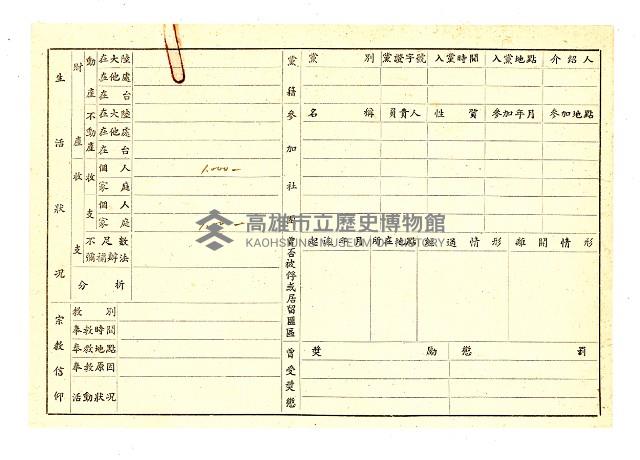 生活狀況
財產
動產
在大陸
在他處
在台
不動產
在大陸
在他處
在台
收支
收
個人 1.000-
家庭
支
個人
家庭
不足數
彌補辦法
分析
宗教信仰
教別
奉教時間
奉教地點
奉教原因
活動狀況
黨籍
黨別 黨證字號 入黨時間 入黨地點 介紹人
參加社團
名稱 負責人 性質 參加年月 參加地點
曾否被俘或居留匪區
起迄年月 所在地點 經過情形 離開情形
曾受獎懲
獎勵 懲罰
高雄市立歷史博物館
KAOHSIUNG MUSEUM OF HISTORY